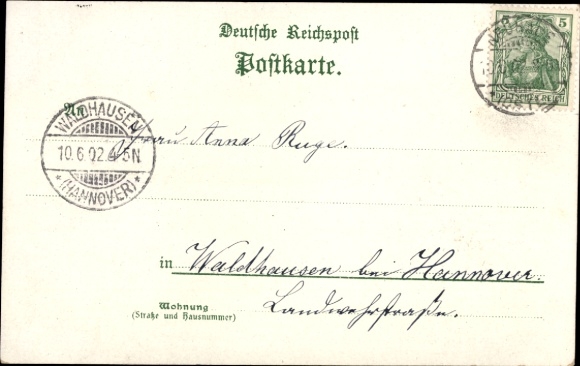 Deutsche Reichspost
Postkarte.
5
DEUTSCHES REICH
An
WALDHAUSEN
10.6.02. 4-5N
*(HANNOVER)*
Frau Anna Ruge.
in Waldhausen bei Hannover.
Wohnung
(Straße und Hausnummer)
Landwehrstraße.